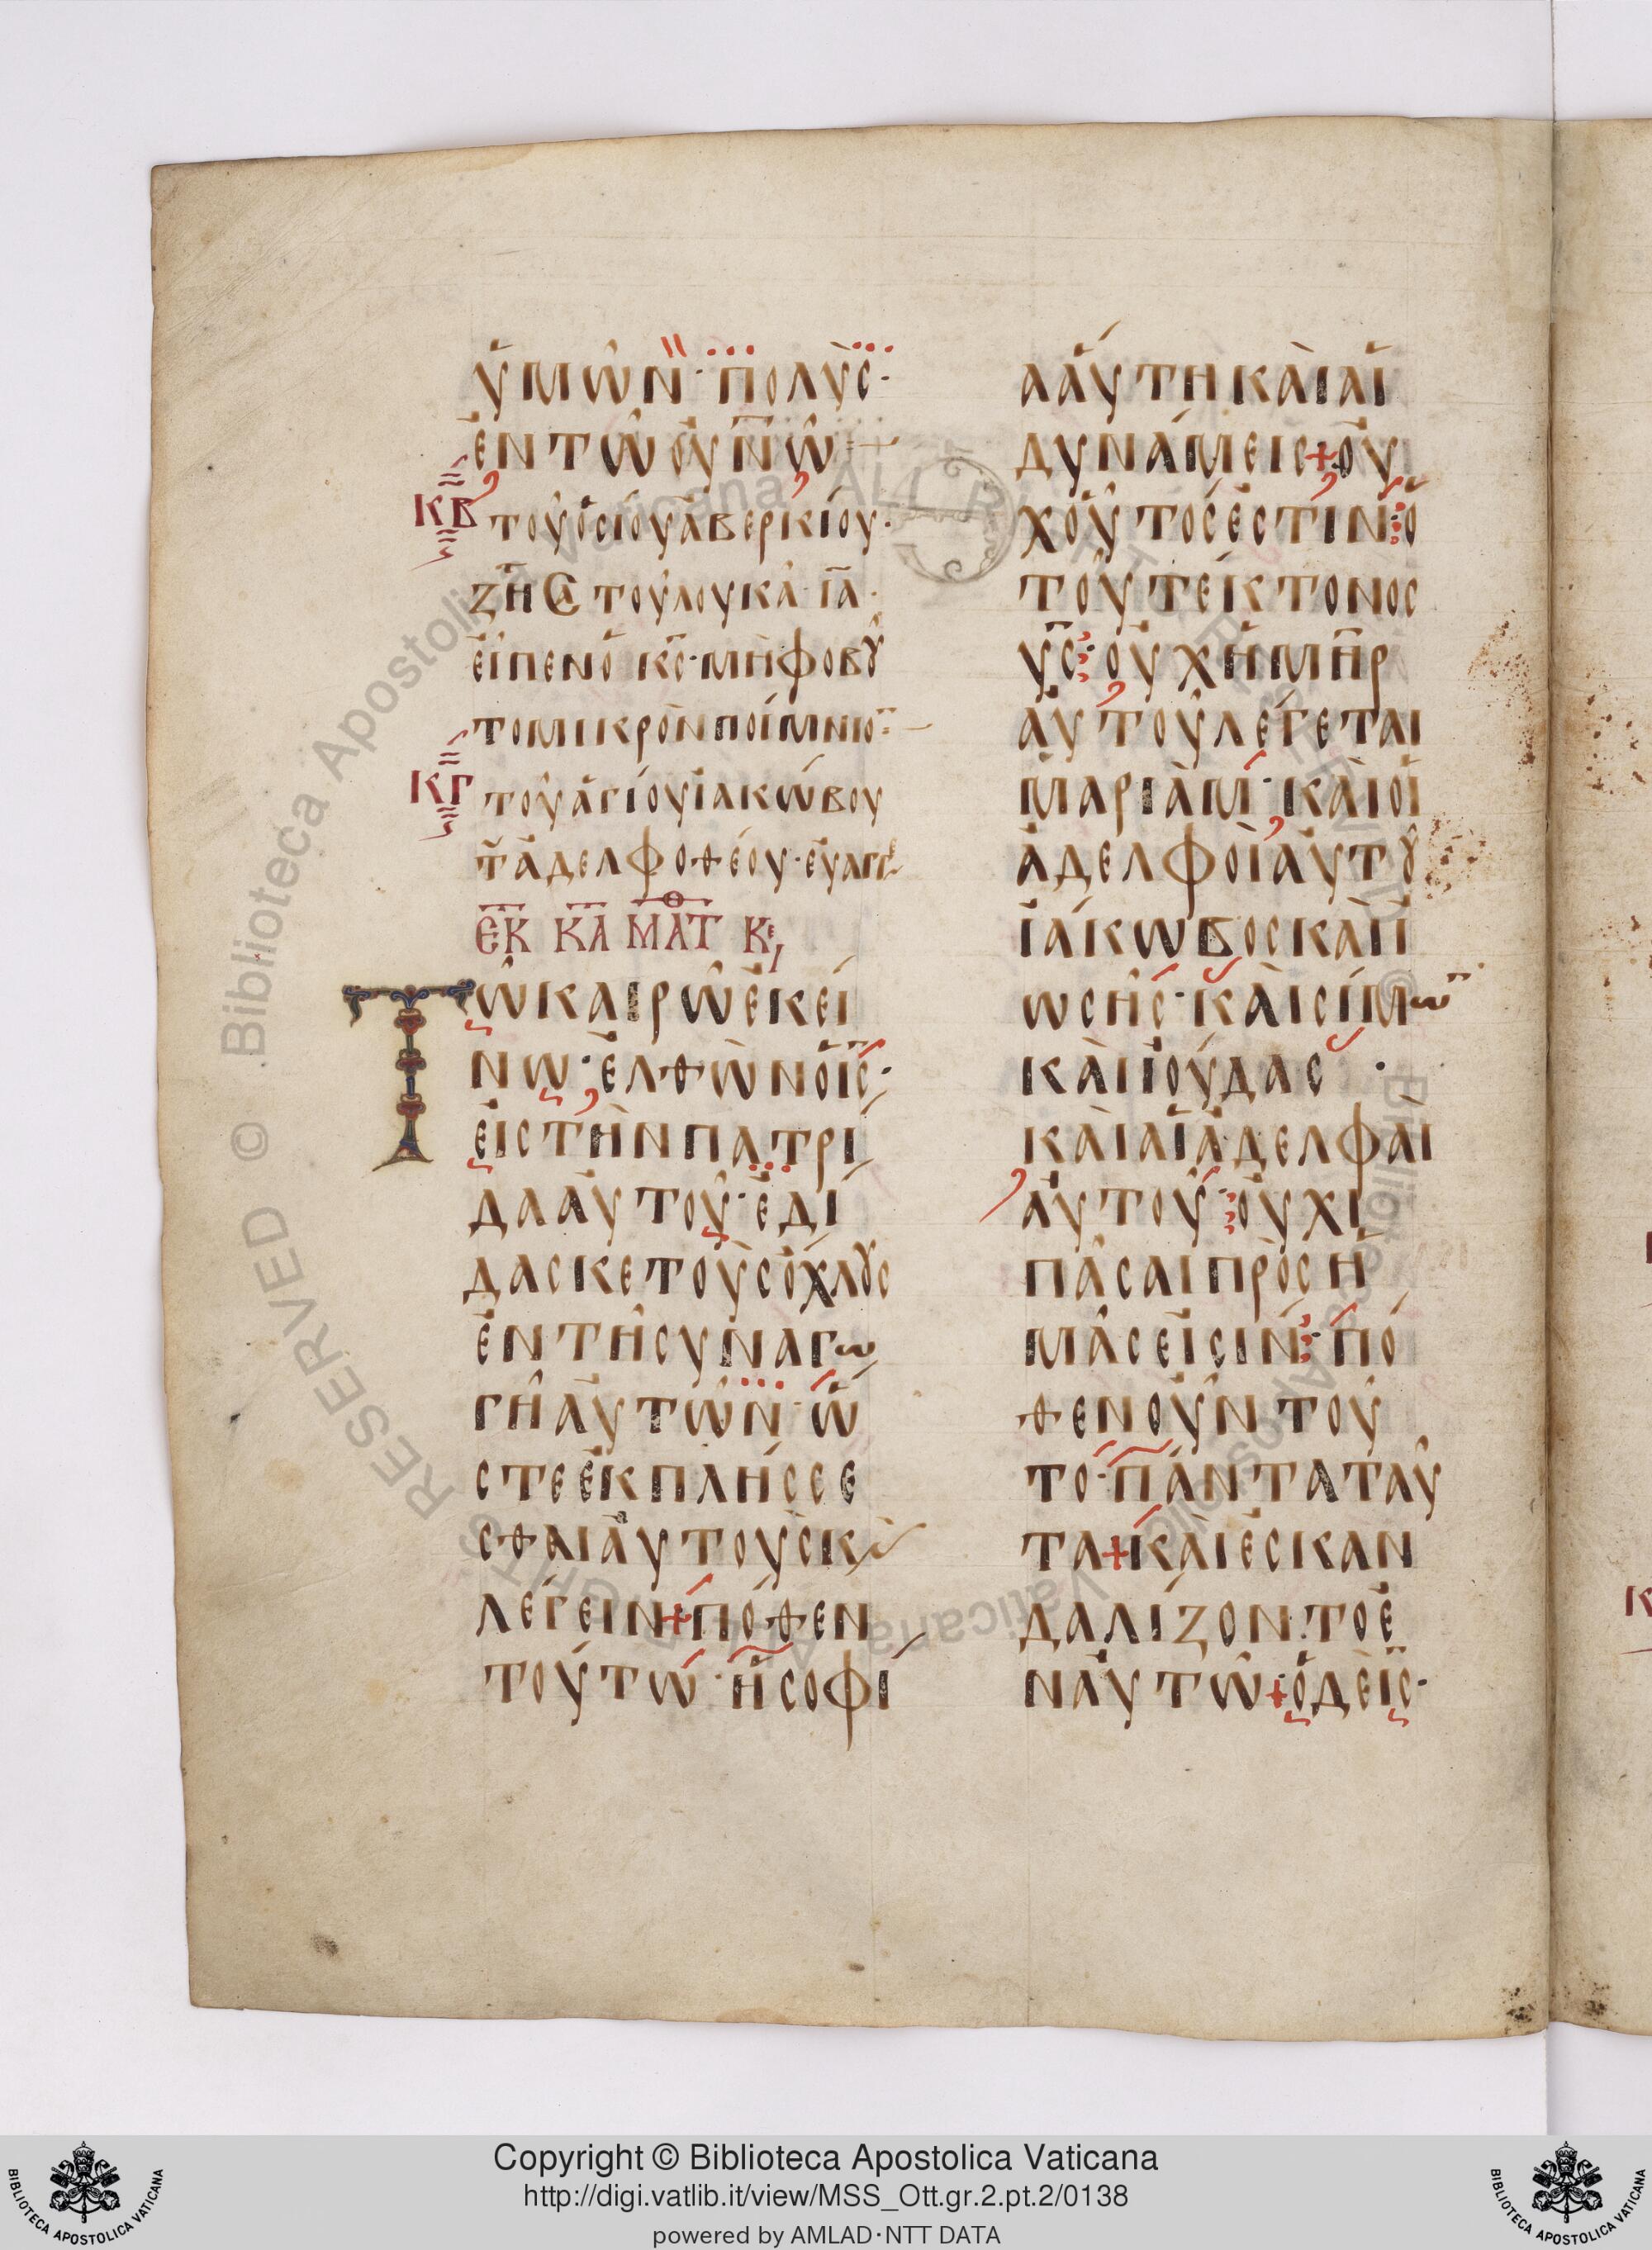 ὙΜῶΝ· ΠΟΛῪΣ·
ἘΝ ΤῶΟΥΝῶ
ΚΒ ΤΟΥ͂ὉΣΊΟΥἈΒΕΡΚΊΟΥ·
ΖΗ ΤΟΥ͂ΛΟΥΚᾶ· ΙΑ·
ΕἾΠΕΝὉ ΚΣ· ΜῊΦΟΒΟΥ͂
ΤΟΜΙΚΡῸΝΠΟΊΜΝΙΟ
ΚΓ ΤΟΥ͂ἉΓΊΟΥἸΑΚΏΒΟΥ
Τ ἈΔΕΛΦΟΘΈΟΥ· ΕΥ̓ΑΓΓ
ΕΚ ΚΑ ΜΑΤΘ ΚΕ
Τῶ ΚΑΙΡῶἘΚΕΊ
Νω· ἘΛΘῺΝὉΙΣ·
ΕἸΣΤῊΝΠΑΤΡΊ
ΔΑΑΥ̓ΤΟΥ͂· ἘΔΊ
ΔΑΣΚΕΤΟῪΣὌΧΛΟΥΣ
ἘΝΤΗ͂ΣΥΝΑΓω
ΓΗ͂ΑΥ̓ΤῶΝ· Ὥ
ΣΤΕἘΚΠΛΉΣΣΕ
ΣΘΑΙΑΥ̓ΤΟῪΣΚῚ
ΛΈΓΕΙΝ+ΠΌΘΕΝ
ΤΟΎΤω· ἩΣΟΦΊ
ΑΑΎΤΗΚΑῚΑἹ
ΔΥΝΆΜΕΙΣ+ΟΥ̓
ΧΟΥ͂ΤΌΣἘΣΤΙΝὉ
ΤΟΥ͂ΤΈΚΤΟΝΟΣ
ΥΣ· ΟΥ̓ΧῊΜΗΡ
ΑΥ̓ΤΟΥ͂ΛΈΓΕΤΑΙ
ΜΑΡΙᾺΜ· ΚΑῚΟἹ
ἈΔΕΛΦΟῚΑΥ̓ΤΟΥ͂
ἸΆΚωΒΟΣΚΑῚἸ
ωΣΗ͂Σ· ΚΑῚΣΊΜω
ΚΑῚἸΟΎΔΑΣ ·
ΚΑῚΑἹἈΔΕΛΦΑῚ
ΑΥ̓ΤΟΥ͂ ΟΥ̓ΧῚ
ΠᾶΣΑΙΠΡῸΣἩ
ΜᾶΣΕἸΣΙΝ· ΠΌ
ΘΕΝΟΥ̓͂ΝΤΟΎ
ΤΟ· ΠΆΝΤΑΤΑΥ͂
ΤΑ+ΚΑῚἘΣΚΑΝ
ΔΑΛΊΖΟΝΤΟἘ
ΝΑΥ̓Τῶ+ὉΔῈΙΣ·
Copyright © Biblioteca Apostolica Vaticana
http://digi.vatlib.it/view/MSS_Ott.gr.2.pt.2/0138
powered by AMLAD·NTT DATA
BIBLIOTECA APOSTOLICA VATICANA
BIBLIOTECA APOSTOLICA VATICANA